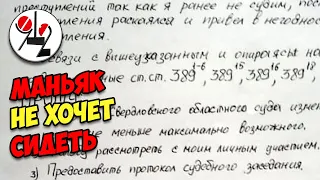 преступлений так как я ранее не судим, пос
пления раскаялся и привел в негоднос
связи с вышеуказанным и опираясь на
ные ст.ст. 389-6, 389 15, 389 16, 389 18,
МАНЬЯК
НЕ ХОЧЕТ
СИДЕТЬ
Свердловского областного суда измен
не меньше максимально возможного.
рассмотреть с моим личным участием.
3) Предоставить протокол судебного заседания.